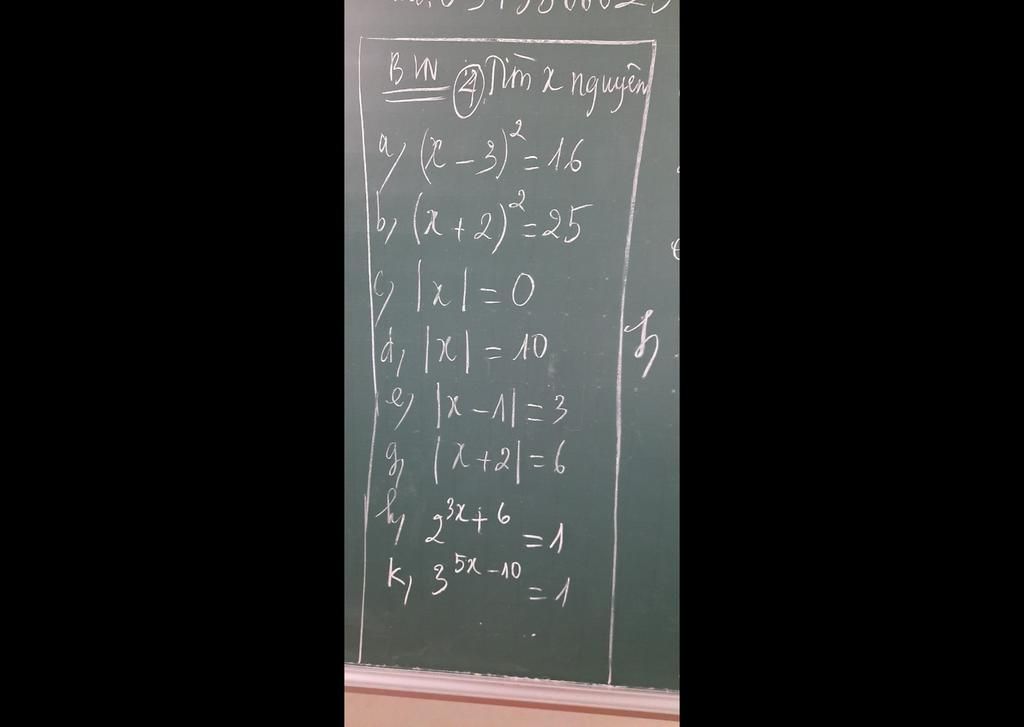 BVN ④ Tìm x nguyên
a, (x - 3)² = 16
b, (x + 2)² = 25
c, |x| = 0
d, |x| = 10
e, |x - 1| = 3
g, |x + 2| = 6
h, 2^{3x + 6} = 1
k, 3^{5x - 10} = 1